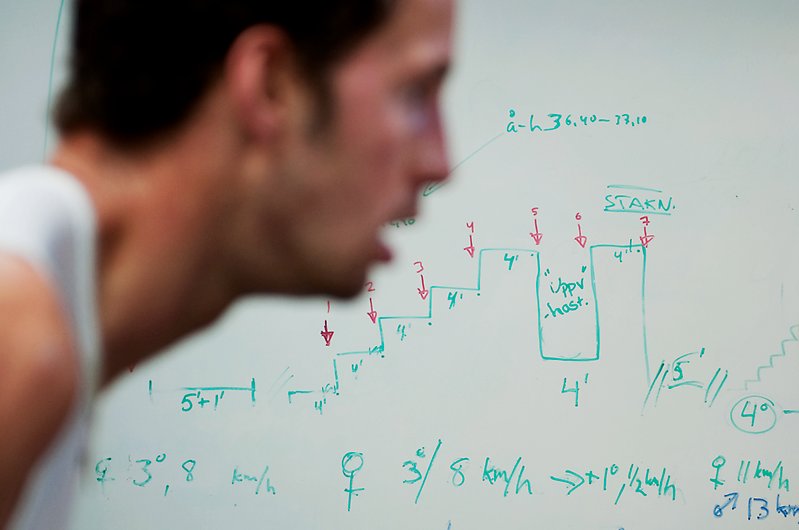 å-h 36,40-37,10
STAKN.
1 2 3 4 5 6 7
4' 4' 4' 4' 4' 4'
"Uppv"
4'
5'+1'
5'
4°
♀ 3°, 8 km/h
♀ 3°/ 8 km/h → +1°, 1/2 km/h
♀ 11 km/h
♂ 13 km